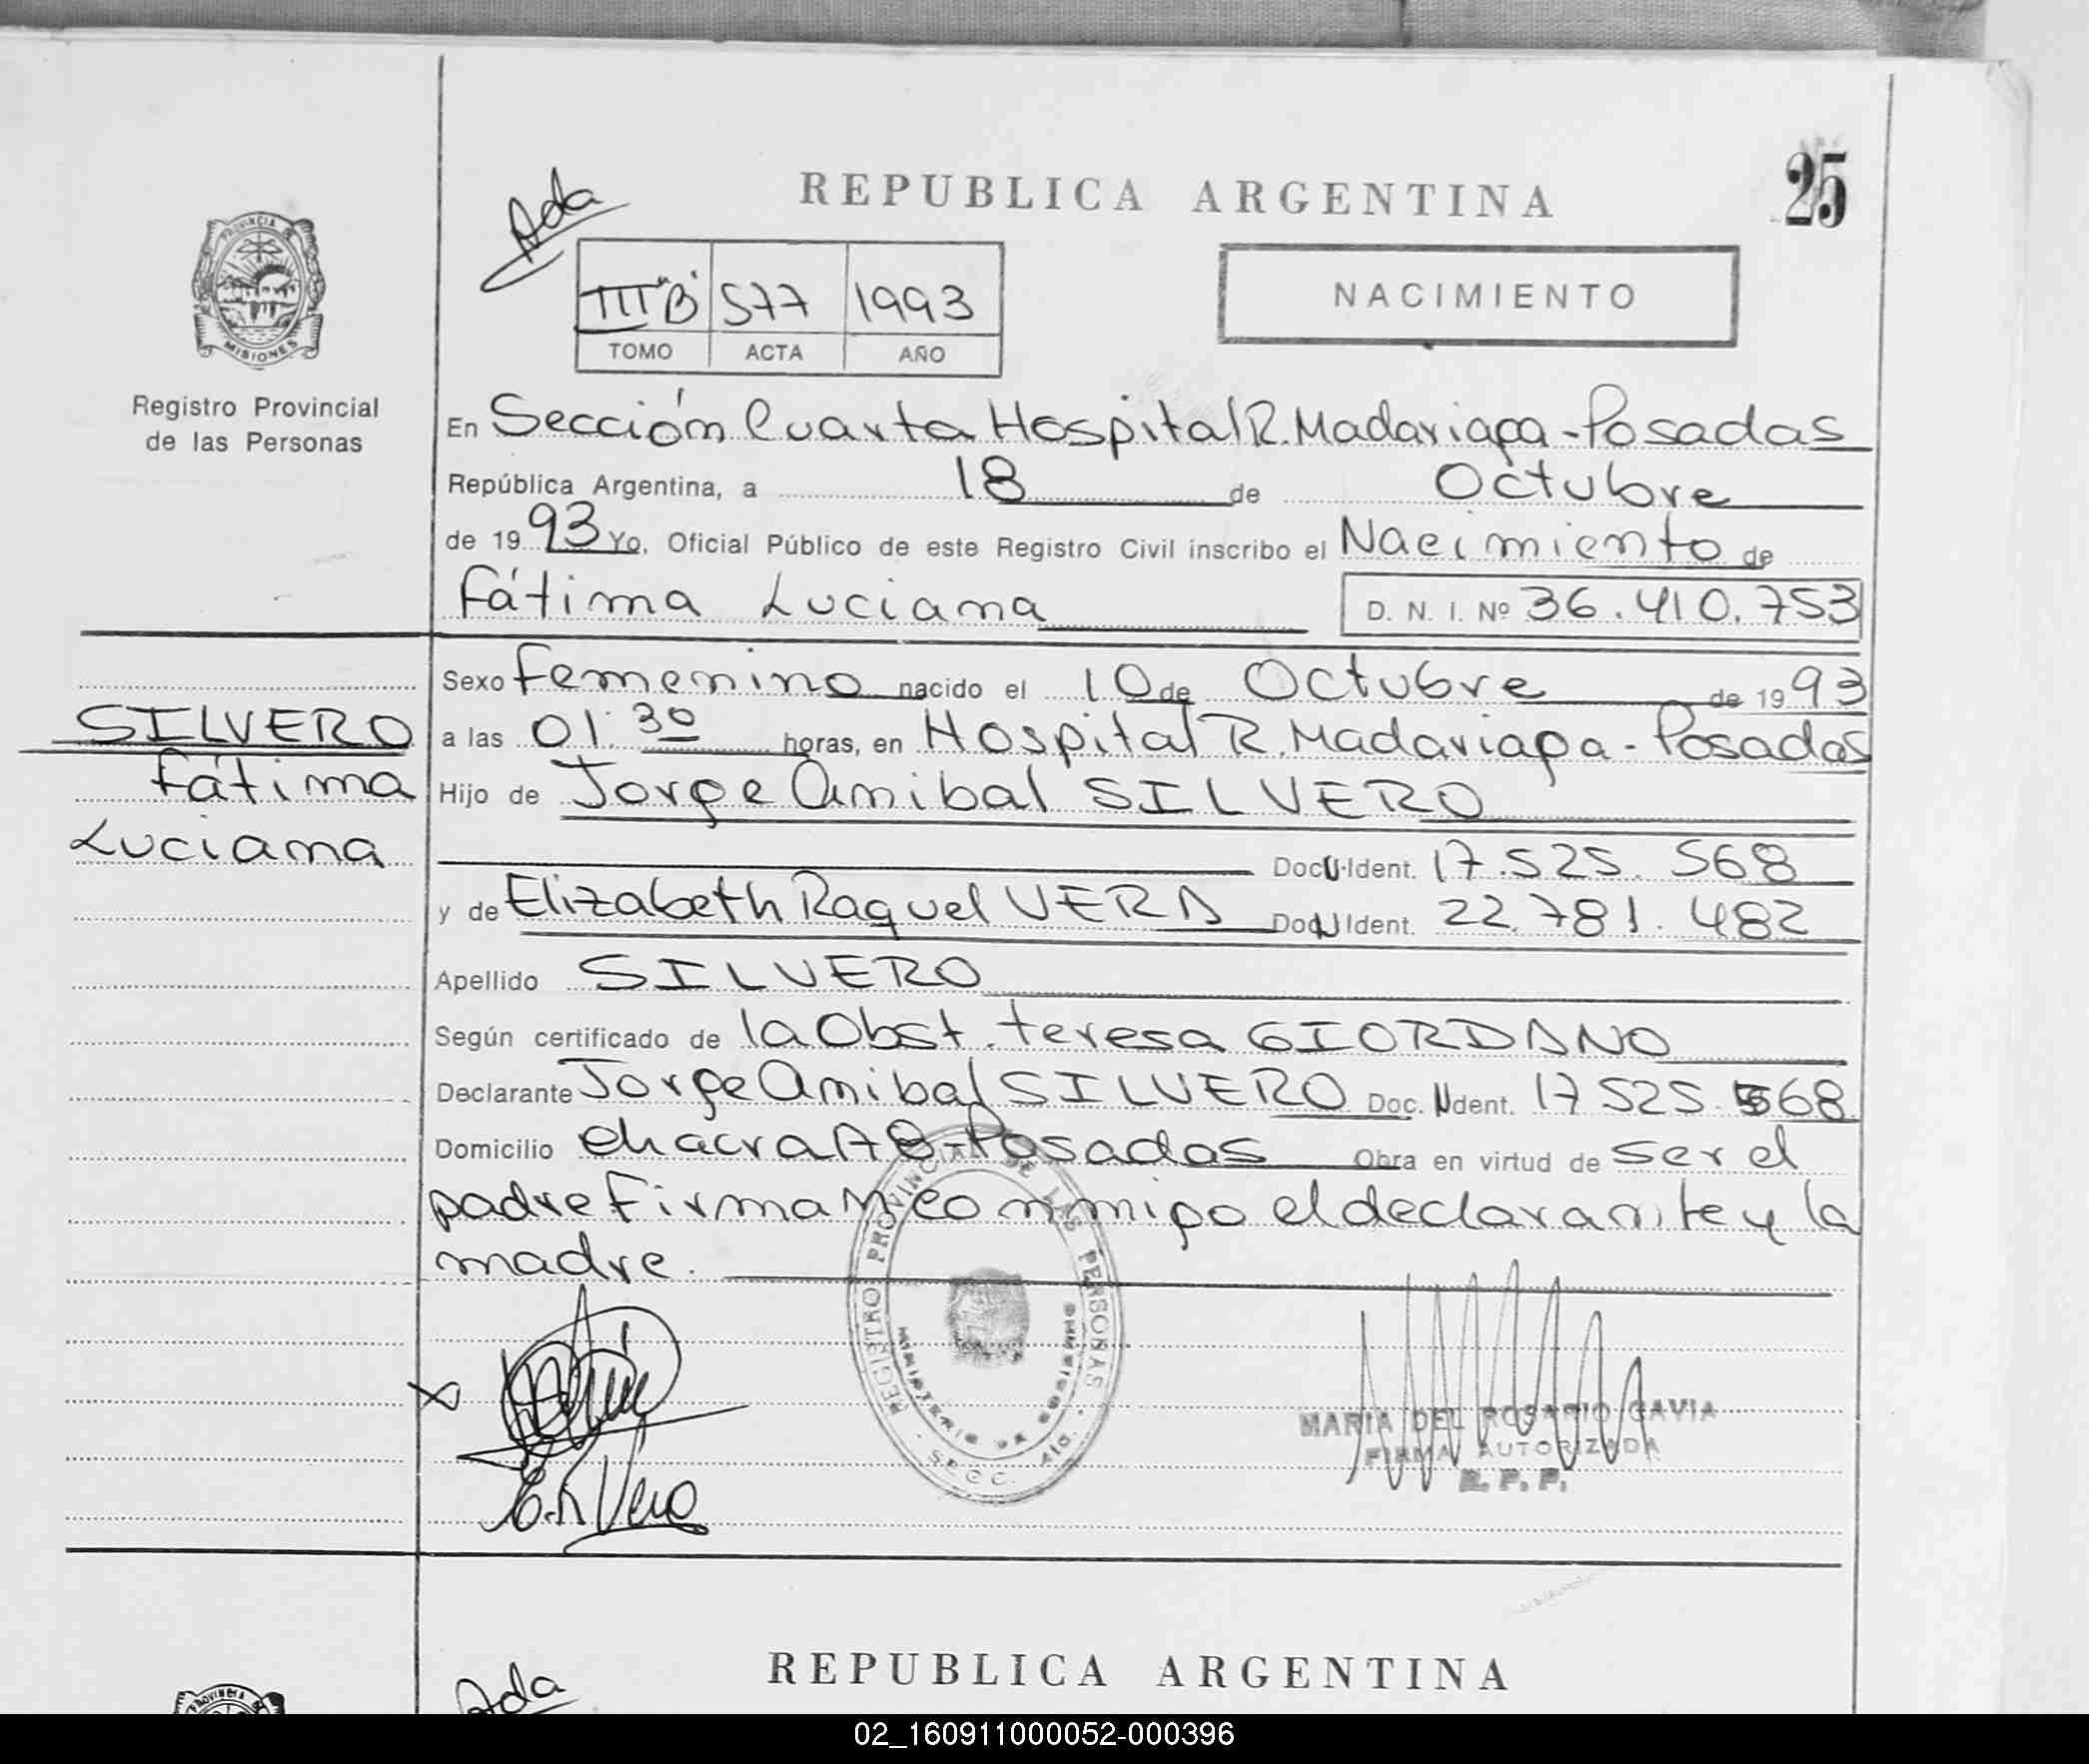 25
REPUBLICA ARGENTINA
Ada
III "B" 577 1993
TOMO ACTA AÑO
NACIMIENTO
PROVINCIA DE
MISIONES
Registro Provincial
de las Personas
En Sección Cuarta Hospital R. Madariaga - Posadas
República Argentina, a 18 de Octubre
de 1993 Yo, Oficial Público de este Registro Civil inscribo el Nacimiento de
Fátima Luciana D. N. I. Nº 36.410.753
Sexo Femenino nacido el 10 de Octubre de 1993
SILVERO
Fátima
Luciana
a las 01:30 horas, en Hospital R. Madariaga - Posadas
Hijo de Jorge Anibal SILVERO
Docu. Ident. 17.525.568
y de Elizabeth Raquel VERA Docu Ident. 22.781.482
Apellido SILVERO
Según certificado de la Obst. Teresa GIORDANO
Declarante Jorge Anibal SILVERO Doc. Ident. 17 525.568
Domicilio chacra Posadas Obra en virtud de ser el
padre Firman conmigo el declarante y la
madre.
REGISTRO PROVINCIAL DE LAS PERSONAS
MINISTERIO DE GOBIERNO
E.R Vera
MARIA DEL ROSARIO GAVIA
FIRMA AUTORIZADA
R. P. P.
REPUBLICA ARGENTINA
Ada
02_160911000052-000396